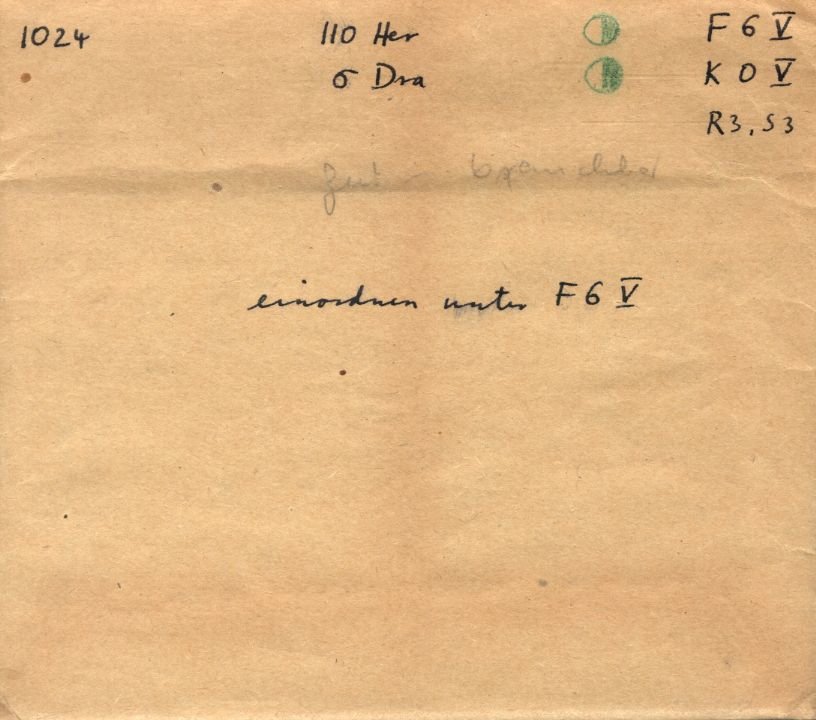 1024 110 Her F 6 V
σ Dra K 0 V
R3, S3
gut brauchbar
einordnen unter F 6 V